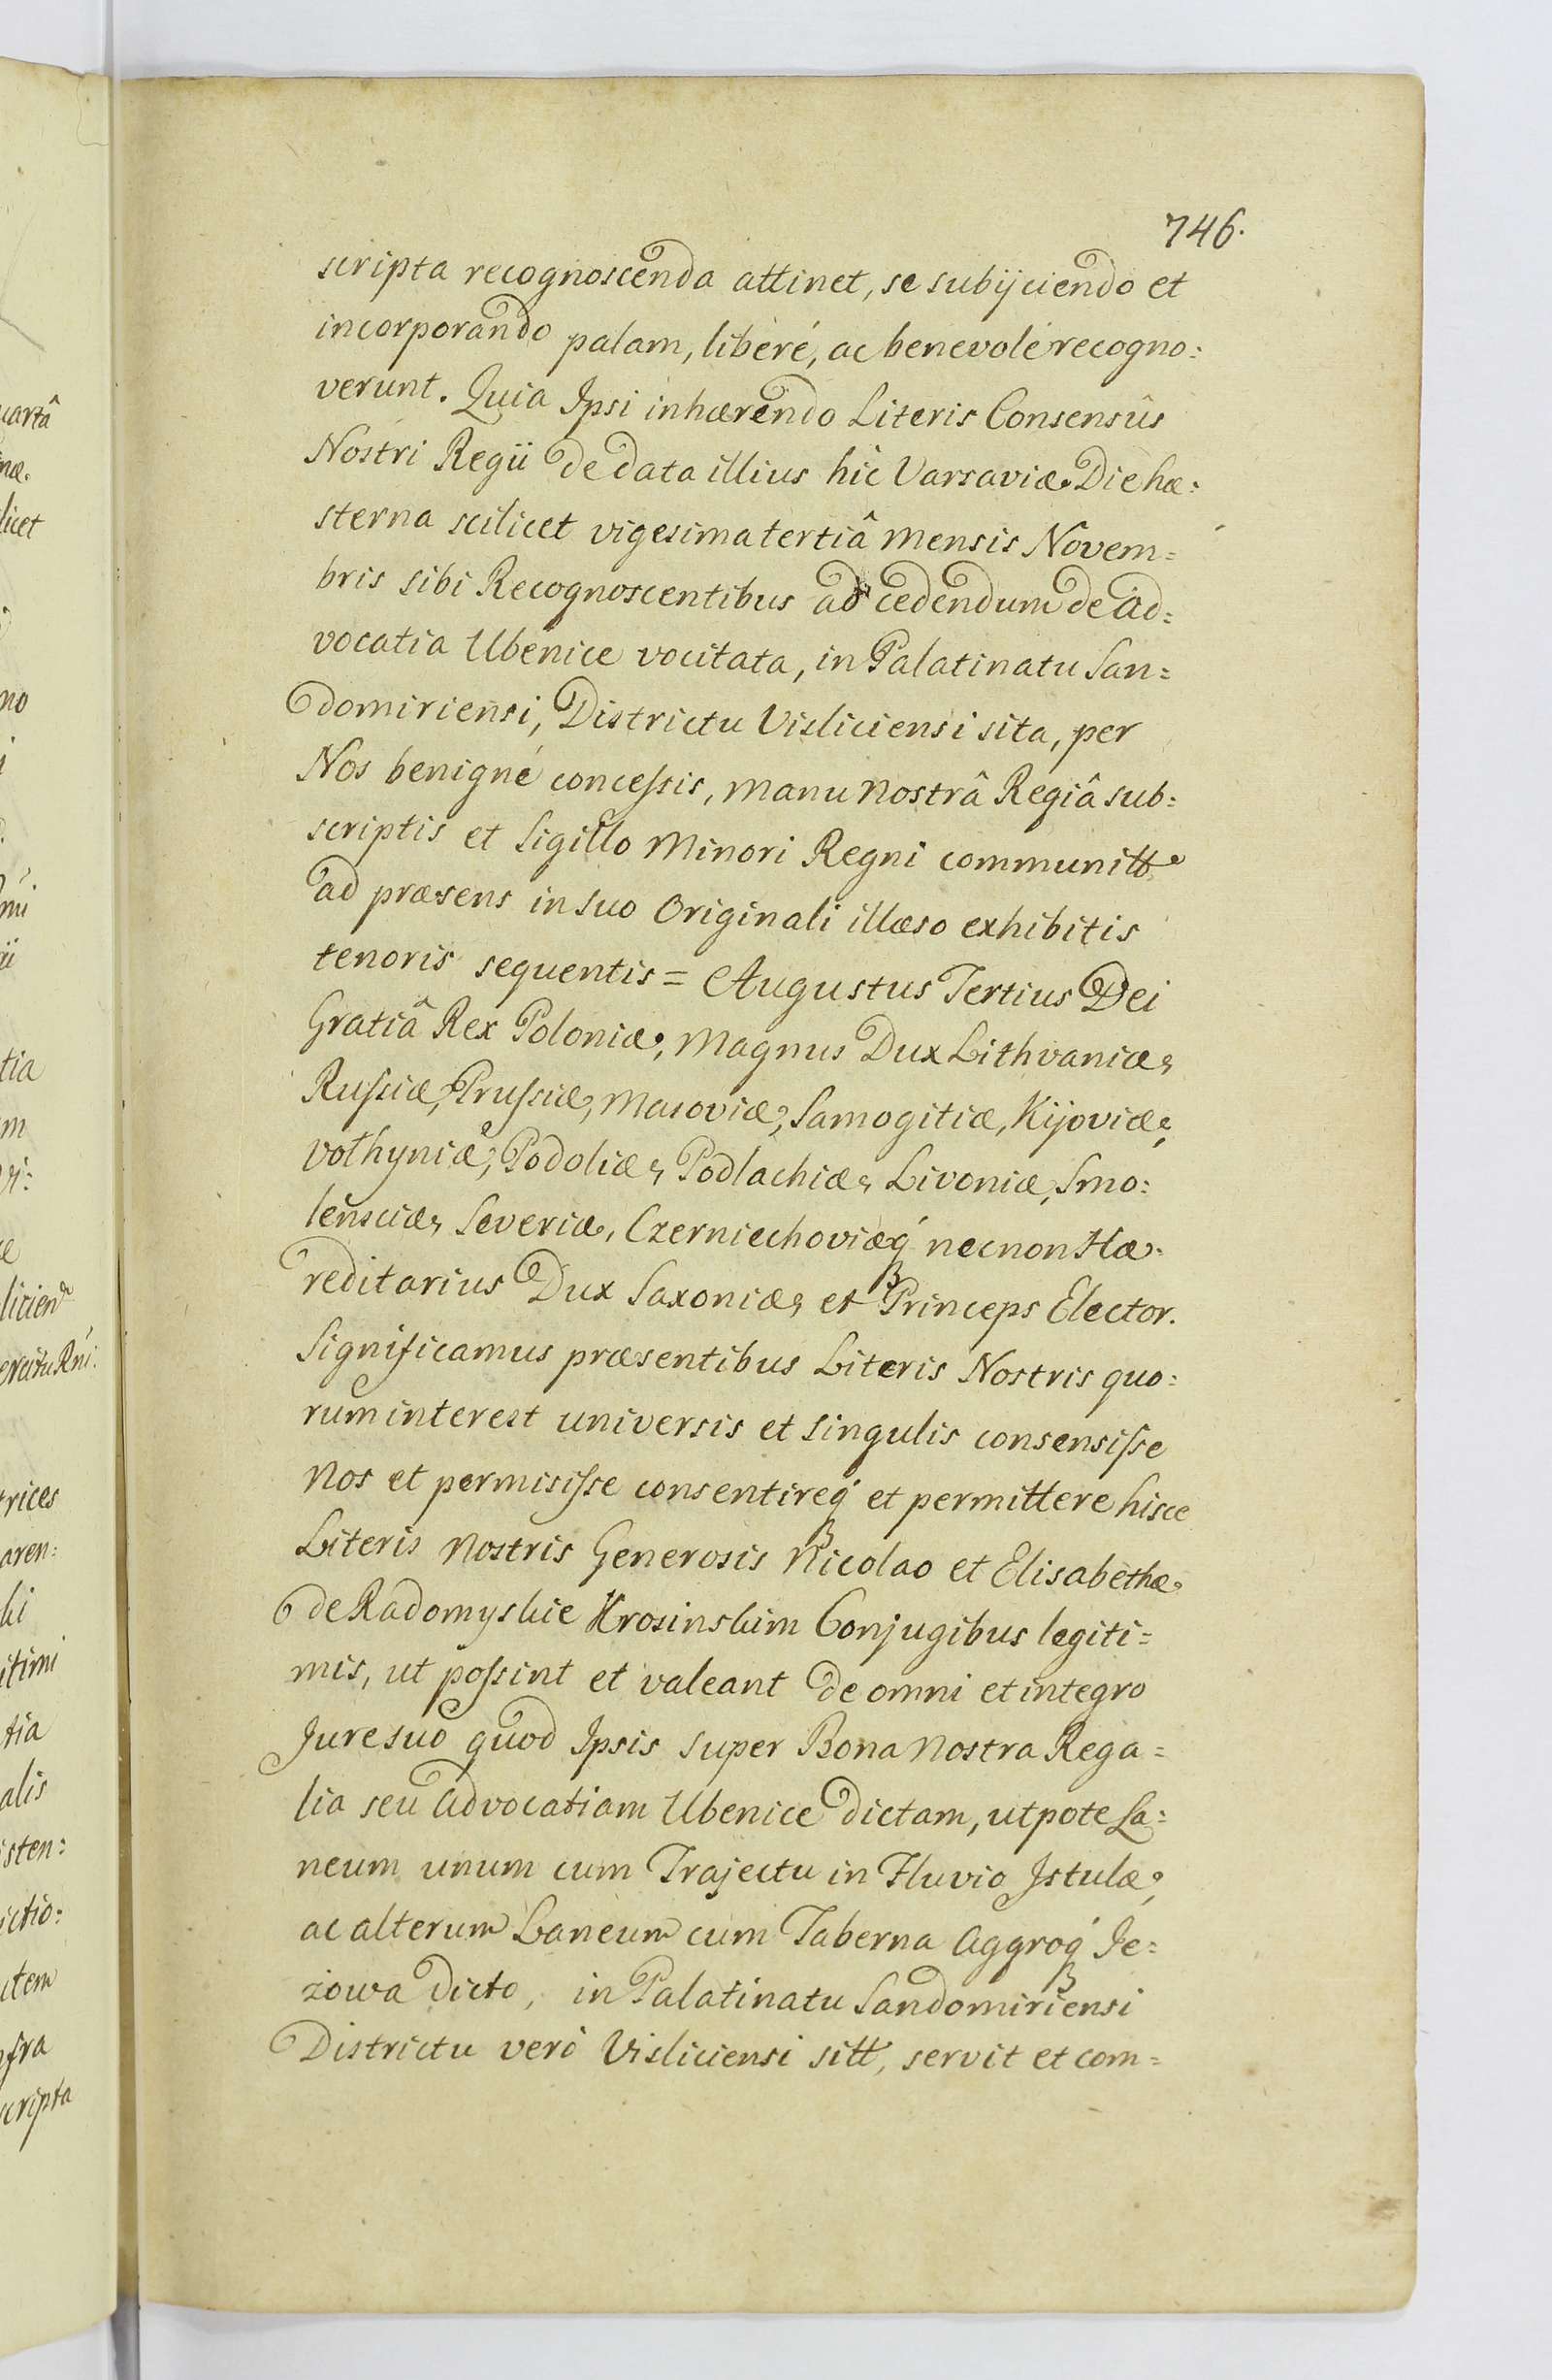 746.
scripta recognoscenda attinet, se subijciendo et
incorporando palam, liberé, ac benevolé recogno:
verunt. Quia Ipsi inhærendo Literis Consensûs
Nostri Regii de data illius hic Varsaviæ Die hæ:
sterna scilicet vigesima tertiâ Mensis Novem=
bris sibi Recognoscentibus ad cedendum de Ad=
vocatia Ubenice vocitata, in Palatinatu San=
domiriensi, Districtu Visliciensi sita, per
Nos benigné concessis, Manu Nostrâ Regiâ sub:
scriptis et Sigillo Minori Regni communitt
ad præsens in suo Originali illæso exhibitis
tenoris sequentis = Augustus Tertius Dei
Gratiâ Rex Poloniæ, Magnus Dux Lithvaniæ,
Russiæ, Prussiæ, Masoviæ, Samogitiæ, Kijoviæ,
Volhyniæ, Podoliæ, Podlachiæ, Livoniæ, Smo:
lensciæ, Severiæ, Czerniechoviæq́ necnon Hæ
reditarius Dux Saxoniæ, et Princeps Elector.
Significamus præsentibus Literis Nostris quo:
rum interest universis et singulis consensisse
Nos et permisisse consentireq́ et permittere hisce
Literis Nostris Generosis Nicolao et Elisabethæ
de Radomyskie Krosinskim Conjugibus legiti=
mis, ut possint et valeant de omni et integro
Jure suo quod Ipsis super Bona Nostra Rega=
lia seu Advocatiam Ubenice dictam, utpote La=
neum unum cum Trajectu in Fluvio Istulæ,
ac alterum Laneum cum Taberna Aggroq́ Je=
żowa dicto, in Palatinatu Sandomiriensi
Districtu verò Visliciensi sitt, servit et com=
uartâ
næ.
licet
no
tia
m
licien
eratu Rni:
trices
aren:
ki
itimi
tia
alis
isten:
ictio:
item
nfra
scripta